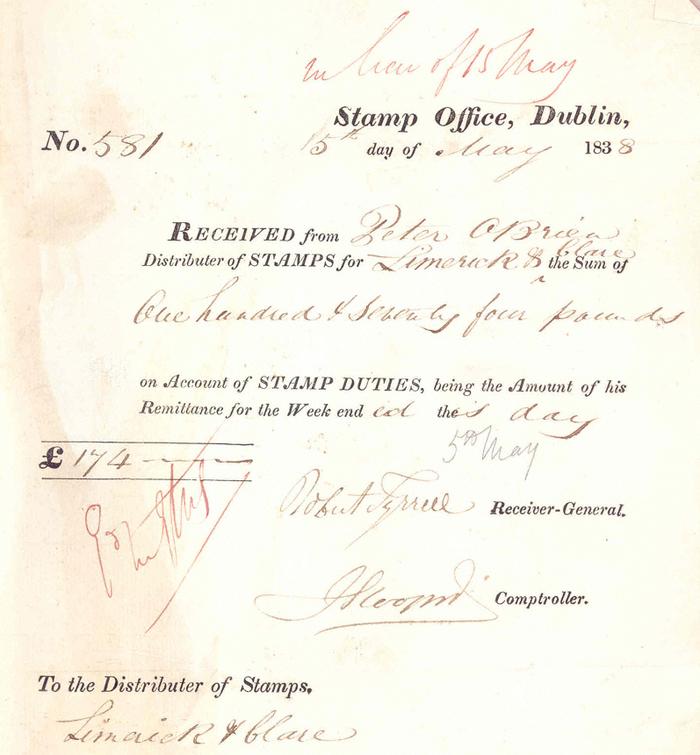 in lieu of 15 May
Stamp Office, Dublin,
No. 581 15th day of May 1838
RECEIVED from Peter O'Brien
Distributer of STAMPS for Limerick & Clare the Sum of
One hundred & Seventy four pounds
on Account of STAMP DUTIES, being the Amount of his
Remittance for the Week ended this day
5th May
£ 174
Robert Tyrrell Receiver-General.
Comptroller.
To the Distributer of Stamps,
Limerick & Clare